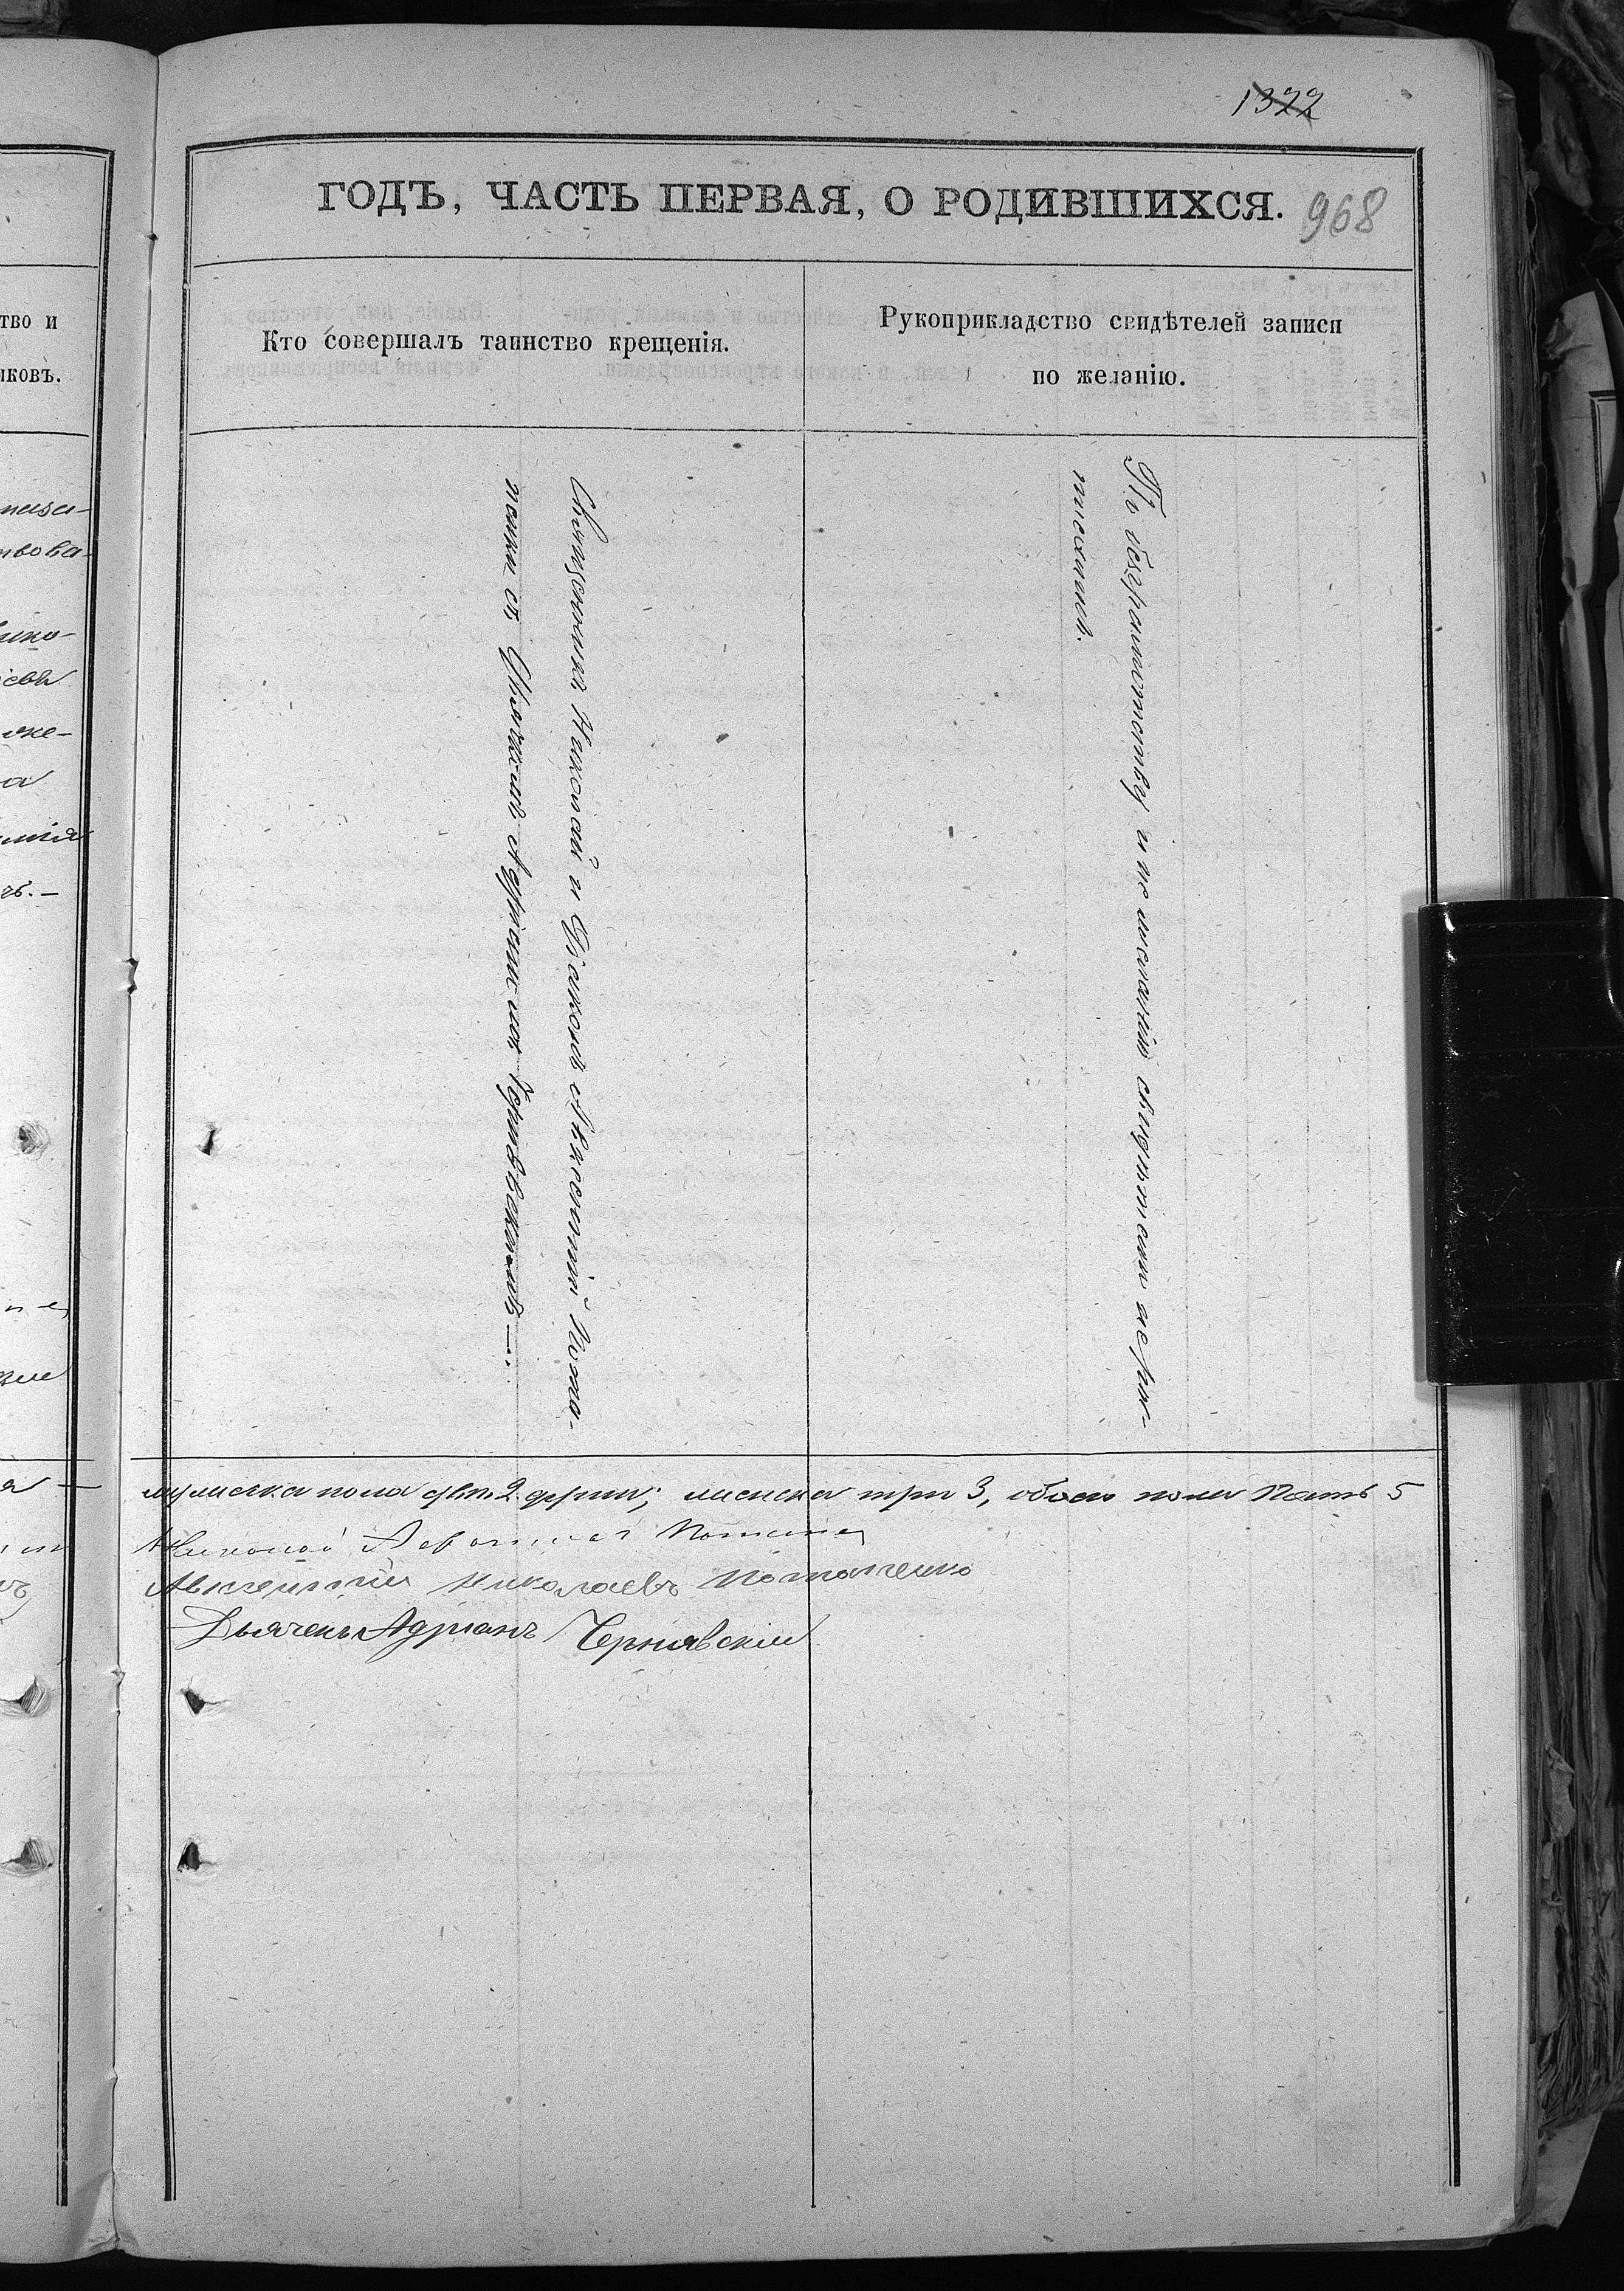 1322
ГОДЪ, ЧАСТЬ ПЕРВАЯ, О РОДИВШИХСЯ. 968
тво и
иковъ.
Кто совершалъ таинство крещенія.
Рукоприкладство свидѣтелей записи
по желанію.
Священникъ Николай и Діаконъ Авксентій Пота-
пенки съ Дьячкомъ Адріаномъ Чернявскимъ —.
По безграмотству и по желанію свидѣтели не рос-
писались.
мужеска пола два 2 души, женска три 3, обоего пола Пять 5
Николай
Авксентій Николаевъ Потапенко
Дьячекъ Адріанъ Чернявскій